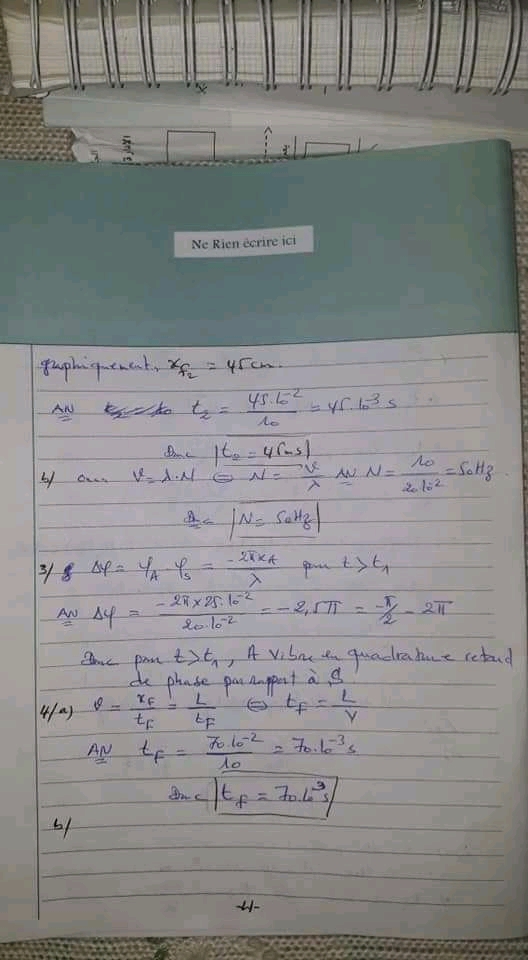 Ne Rien écrire ici
graphiquement, x_{f_2} = 45cm.
AN t_2 = \frac{45.10^{-2}}{10} = 45.10^{-3} s
Donc |t_2 = 45ms|
b/ on a V = λ.N ⇔ N = \frac{V}{λ} AN N = \frac{10}{20.10^{-2}} = 50Hz.
Donc |N = 50Hz|
3/ Δφ = φ_A - φ_S = \frac{-2πx_A}{λ} pour t > t_1
AN Δφ = \frac{-2π×25.10^{-2}}{20.10^{-2}} = -2,5π = -\frac{π}{2} - 2π
Donc pour t > t_1, A vibre en quadrature retard
de phase par rapport à S
4/a) V = \frac{x_F}{t_F} = \frac{L}{t_F} ⇔ t_F = \frac{L}{V}
AN t_F = \frac{70.10^{-2}}{10} = 70.10^{-3} s
Donc |t_F = 70.10^{-3} s|
b/
-4-